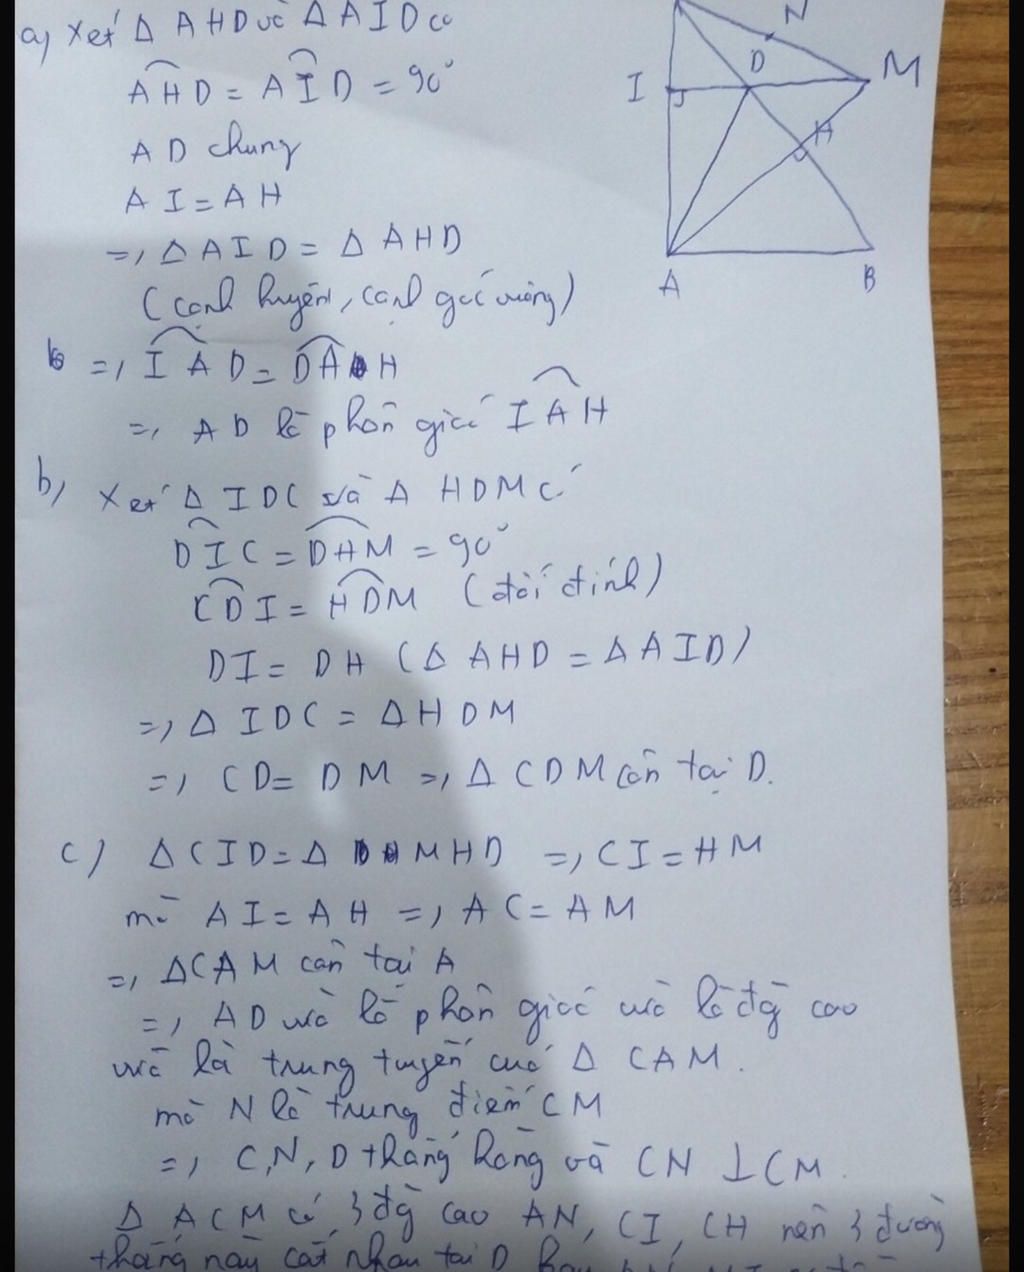 a) Xét Δ AHD và Δ AID có
AHD = AID = 90°
AD chung
AI = AH
=> Δ AID = Δ AHD
(cạnh huyền, cạnh góc vuông)
=> IAD = DAH
=> AD là phân giác IAH
b) Xét Δ IDC và Δ HDM có
DIC = DHM = 90°
CDI = HDM (đối đỉnh)
DI = DH (Δ AHD = Δ AID)
=> Δ IDC = Δ HDM
=> CD = DM => Δ CDM cân tại D.
c) Δ CID = Δ MHD => CI = HM
mà AI = AH => AC = AM
=> Δ CAM cân tại A
=> AD vừa là phân giác vừa là đg cao
vừa là trung tuyến của Δ CAM.
mà N là trung điểm CM
=> C, N, D thẳng hàng và CN ⊥ CM.
Δ ACM có 3 đg cao AN, CI, CH nên 3 đường
thẳng này cắt nhau tại D
N
D
I
M
H
A
B